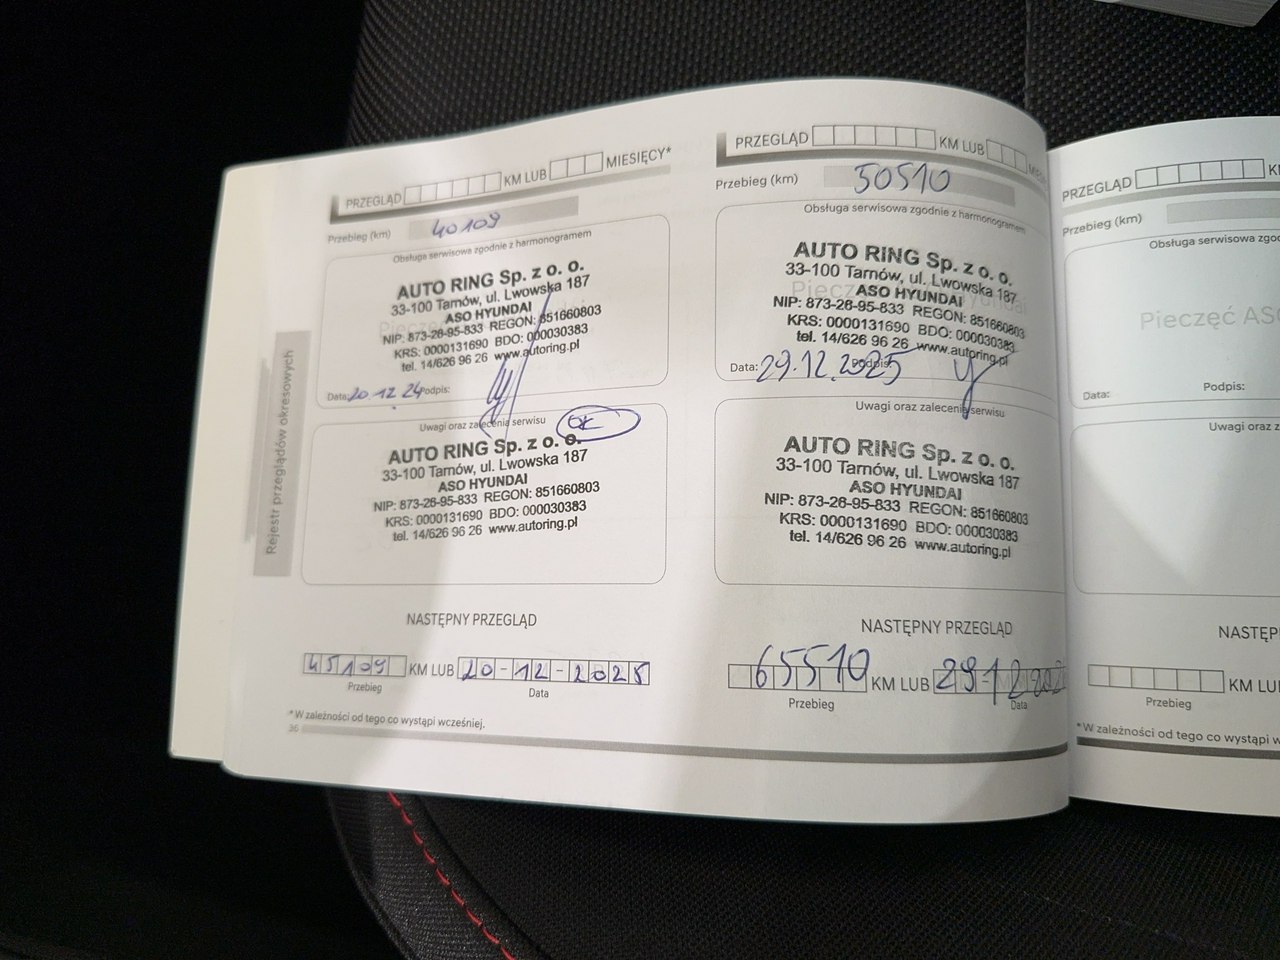 PRZEGLĄD KM LUB MIESIĘCY*
Przebieg (km) 40109
Obsługa serwisowa zgodnie z harmonogramem
AUTO RING Sp. z o. o.
33-100 Tarnów, ul. Lwowska 187
ASO HYUNDAI
NIP: 873-26-95-833 REGON: 851660803
KRS: 0000131690 BDO: 000030383
tel. 14/626 96 26 www.autoring.pl
Data: 20.12.24 Podpis:
Uwagi oraz zalecenia serwisu OK
AUTO RING Sp. z o. o.
33-100 Tarnów, ul. Lwowska 187
ASO HYUNDAI
NIP: 873-26-95-833 REGON: 851660803
KRS: 0000131690 BDO: 000030383
tel. 14/626 96 26 www.autoring.pl
NASTĘPNY PRZEGLĄD
45109 KM LUB 20-12-2025
Przebieg Data
*W zależności od tego co wystąpi wcześniej.
36
Rejestr przeglądów okresowych
PRZEGLĄD KM LUB
Przebieg (km) 50510
Obsługa serwisowa zgodnie z harmonogramem
AUTO RING Sp. z o. o.
33-100 Tarnów, ul. Lwowska 187
ASO HYUNDAI
NIP: 873-26-95-833 REGON: 851660803
KRS: 0000131690 BDO: 000030383
tel. 14/626 96 26 www.autoring.pl
Data: 29.12.2025 Podpis:
Uwagi oraz zalecenia serwisu
AUTO RING Sp. z o. o.
33-100 Tarnów, ul. Lwowska 187
ASO HYUNDAI
NIP: 873-26-95-833 REGON: 851660803
KRS: 0000131690 BDO: 000030383
tel. 14/626 96 26 www.autoring.pl
NASTĘPNY PRZEGLĄD
65510 KM LUB
Przebieg Data
PRZEGLĄD K
Przebieg (km)
Obsługa serwisowa zgo
Pieczęć ASO
Data: Podpis:
Uwagi oraz z
NASTĘP
KM LU
Przebieg
*W zależności od tego co wystąpi w